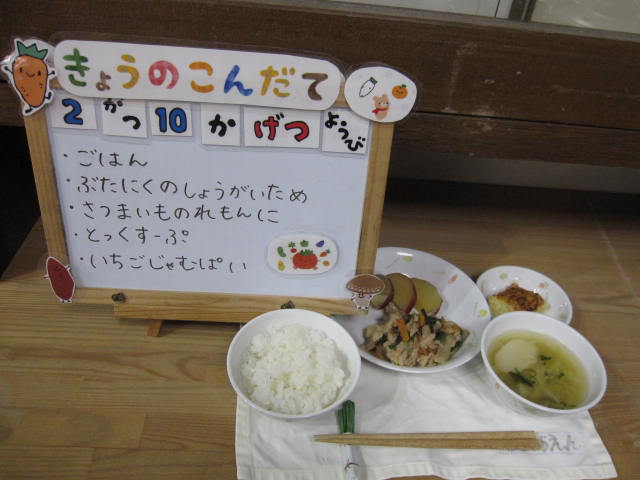 きょうのこんだて
2 がつ 10 か げつ ようび
・ごはん
・ぶたにくのしょうがいため
・さつまいものれもんに
・とっくすーぷ
・いちごじゃむぱい
えん